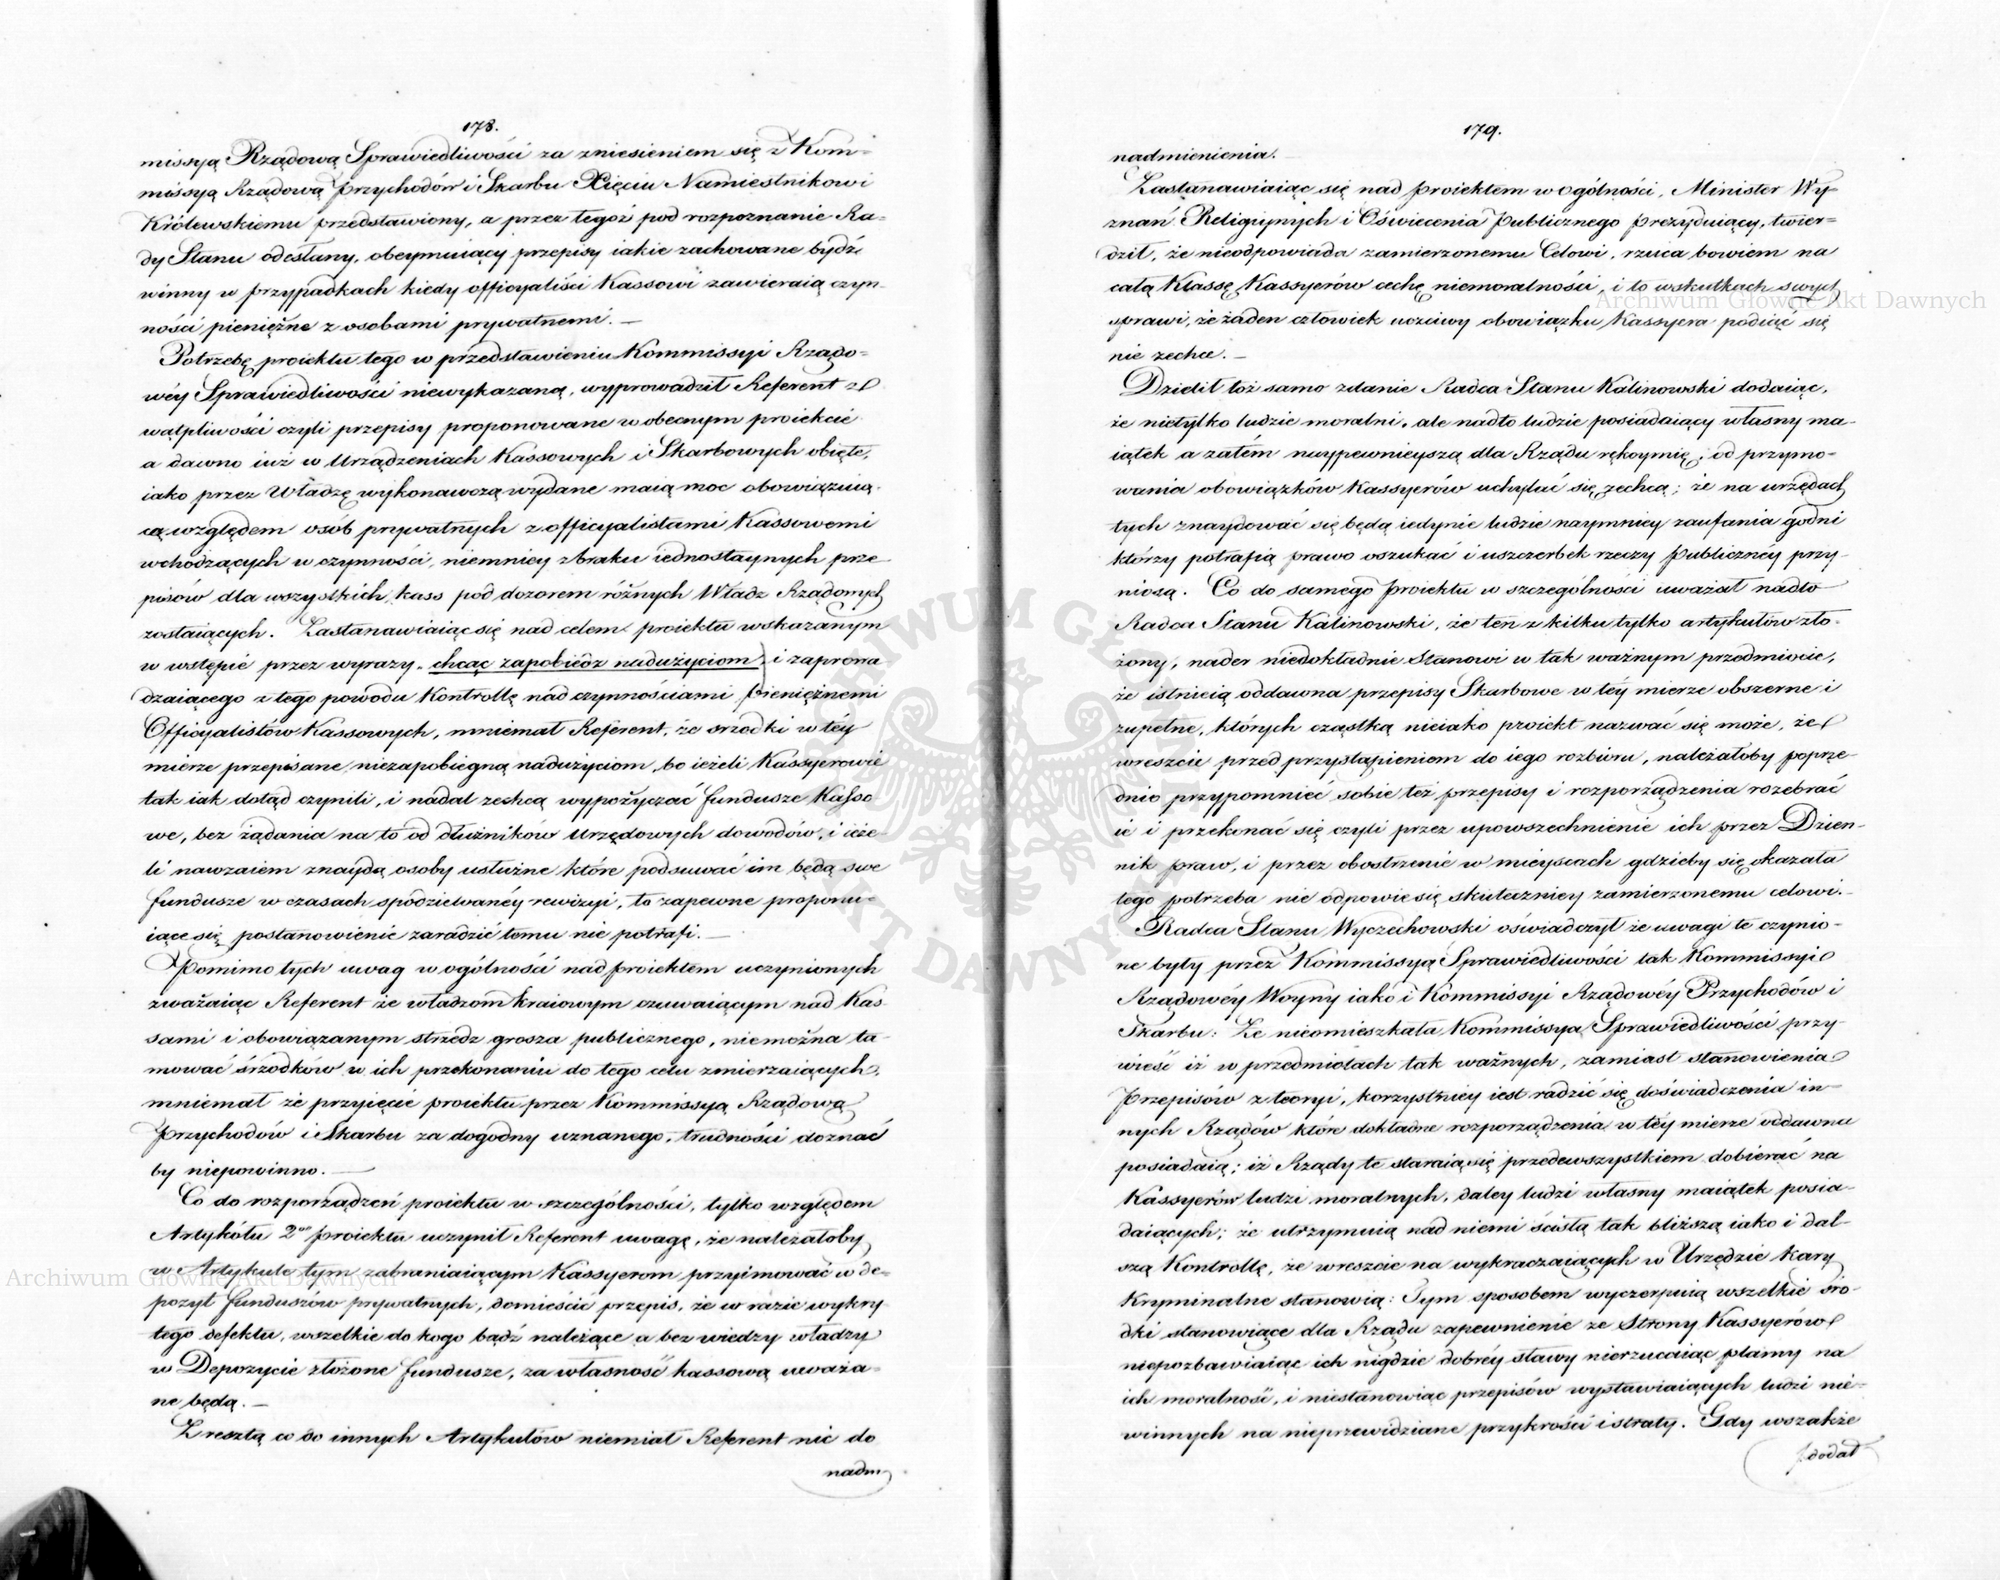 178.
missyą Rządową Sprawiedliwości za zniesieniem się z Kom-
missyą Rządową Przychodów i Skarbu Xięciu Namiestnikowi
Królewskiemu przedstawiony, a przez tegoż pod rozpoznanie Ra-
dy Stanu odesłany, obeymuiący przepisy iakie zachowane bydź
winny w przypadkach kiedy officyaliści Kassowi zawieraią czyn-
ności pieniężne z osobami prywatnemi. —
Potrzebę proiektu tego w przedstawieniu Kommissyi Rządo-
wéy Sprawiedliwości niewykazaną, wyprowadził Referent z
wątpliwości czyli przepisy proponowane w obecnym proiekcie
a dawno iuż w Urządzeniach Kassowych i Skarbowych obięte,
iako przez Władzę wykonawczą wydane maią moc obowiązuią-
cą względem osób prywatnych z officyalistami Kassowemi
wchodzących w czynności, niemniey z braku iednostaynych prze-
pisów dla wszystkich kass pod dozorem różnych Władz Rządowych
zostaiących. Zastanawiaiąc się nad celem proiektu wskazanym
w wstępie przez wyrazy „chcąc zapobiedz nadużyciom" i zaprowa-
dzaiącego z tego powodu Kontrollę nad czynnościami pieniężnemi
Officyalistów Kassowych, mniemał Referent, że srzodki w téy
mierze przepisane niezapobiegną nadużyciom, bo ieżeli Kassyerowie
tak iak dotąd czynili, i nadal zechcą wypożyczać fundusze Kasso-
we, bez żądania na to od dłużników Urzędowych dowodów, i ieże-
li nawzaiem znaydą osoby usłużne które podsuwać im będą swe
fundusze w czasach spodziewanéy rewizyi, to zapewne proponu-
iące się postanowienie zaradzić temu nie potrafi. —
Pomimo tych uwag w ogólności nad proiektem uczynionych
zważaiąc Referent że władzom kraiowym czuwaiącym nad Kas-
sami i obowiązanym strzedz grosza publicznego, niemożna ta-
mować śrzodków w ich przekonaniu do tego celu zmierzaiących,
mniemał że przyięcie proiektu przez Kommissyą Rządową
Przychodów i Skarbu za dogodny uznanego, trudności doznać
by niepowinno. —
Co do rozporządzeń proiektu w szczególności, tylko względem
Artykółu 2go proiektu uczynił Referent uwagę, że należałoby
w Artykule tym zabraniaiącym Kassyerom przyimować w de-
pozyt funduszów prywatnych, domieścić przepis, że w razie wykry-
tego defektu, wszelkie do kogo bądź należące a bez wiedzy władzy
w Depozycie złożone fundusze, za własność kassową uważa-
ne będą. —
Z resztą co do innych Artykułów niemiał Referent nic do
nadm
179.
nadmienienia. —
Zastanawiaiąc się nad proiektem w ogólności, Minister Wy-
znań Religiynych i Oświecenia Publicznego Prezyduiący, twier-
dził, że nieodpowiada zamierzonemu Celowi, rzuca bowiem na
całą Klassę Kassyerów cechę niemoralności, i to w skutkach swych
sprawi, że żaden człowiek uczciwy obowiązku Kassyera podiąć się
nie zechce. —
Dzielił toż samo zdanie Radca Stanu Kalinowski dodaiąc,
że nietylko ludzie moralni, ale nadto ludzie posiadaiący własny ma-
iątek a zatém naypewnieyszą dla Rządu rękoymię, od przymo-
wania obowiązków Kassyerów uchylać się zechcą; że na urzędach
tych znaydować się będą iedynie ludzie naymniey zaufania godni
którzy potrafią prawo oszukać i uszczerbek rzeczy publicznéy przy-
niosą. Co do samego proiektu w szczególności uważał nadto
Radca Stanu Kalinowski, że ten z kilku tylko artykułów zło-
żony, nader niedokładnie stanowi w tak ważnym przedmiocie,
że istnieią oddawna przepisy Skarbowe w téy mierze obszerne i
zupełne, których cząstką nieiako proiekt nazwać się może, że
wreszcie przed przystąpieniem do iego rozbioru, należałoby poprze-
dnio przypomnieć sobie też przepisy i rozporządzenia rozebrać
ie i przekonać się czyli przez upowszechnienie ich przez Dzien-
nik praw, i przez obostrzenie w mieyscach gdzieby się okazała
tego potrzeba nie odpowie się skuteczniey zamierzonemu celowi. —
Radca Stanu Wyczechowski oświadczył że uwagi te czynio-
ne były przez Kommissyą Sprawiedliwości tak Kommissyi
Rządowéy Woyny iako i Kommissyi Rządowéy Przychodów i
Skarbu: Że nieomieszkała Kommissya Sprawiedliwości przy-
wieść iż w przedmiotach tak ważnych, zamiast stanowienia
Przepisów z teoryi, korzystniey iest radzić się doświadczenia in-
nych Rządów które dokładne rozporządzenia w téy mierze oddawna
posiadaią; iż Rządy te staraią się przedewszystkiem dobierać na
Kassyerów ludzi moralnych, daley ludzi własny maiątek posia-
daiących; że utrzymuią nad niemi ścisłą tak bliższą iako i dal-
szą Kontrollę, że wreszcie na wykraczaiących w Urzędzie kary
Kryminalne stanowią: Tym sposobem wyczerpuią wszelkie śro-
dki stanowiące dla Rządu zapewnienie ze Strony Kassyerów
niepozbawiaiąc ich nigdzie dobréy sławy nierzucaiąc plamy na
ich moralność, i niestanowiąc przepisów wystawiaiących ludzi nie-
winnych na nieprzewidziane przykrości i straty. Gdy wszakże
dodał
Archiwum Główne Akt Dawnych
Archiwum Główne Akt Dawnych
ARCHIWUM GŁÓWNE AKT DAWNYCH